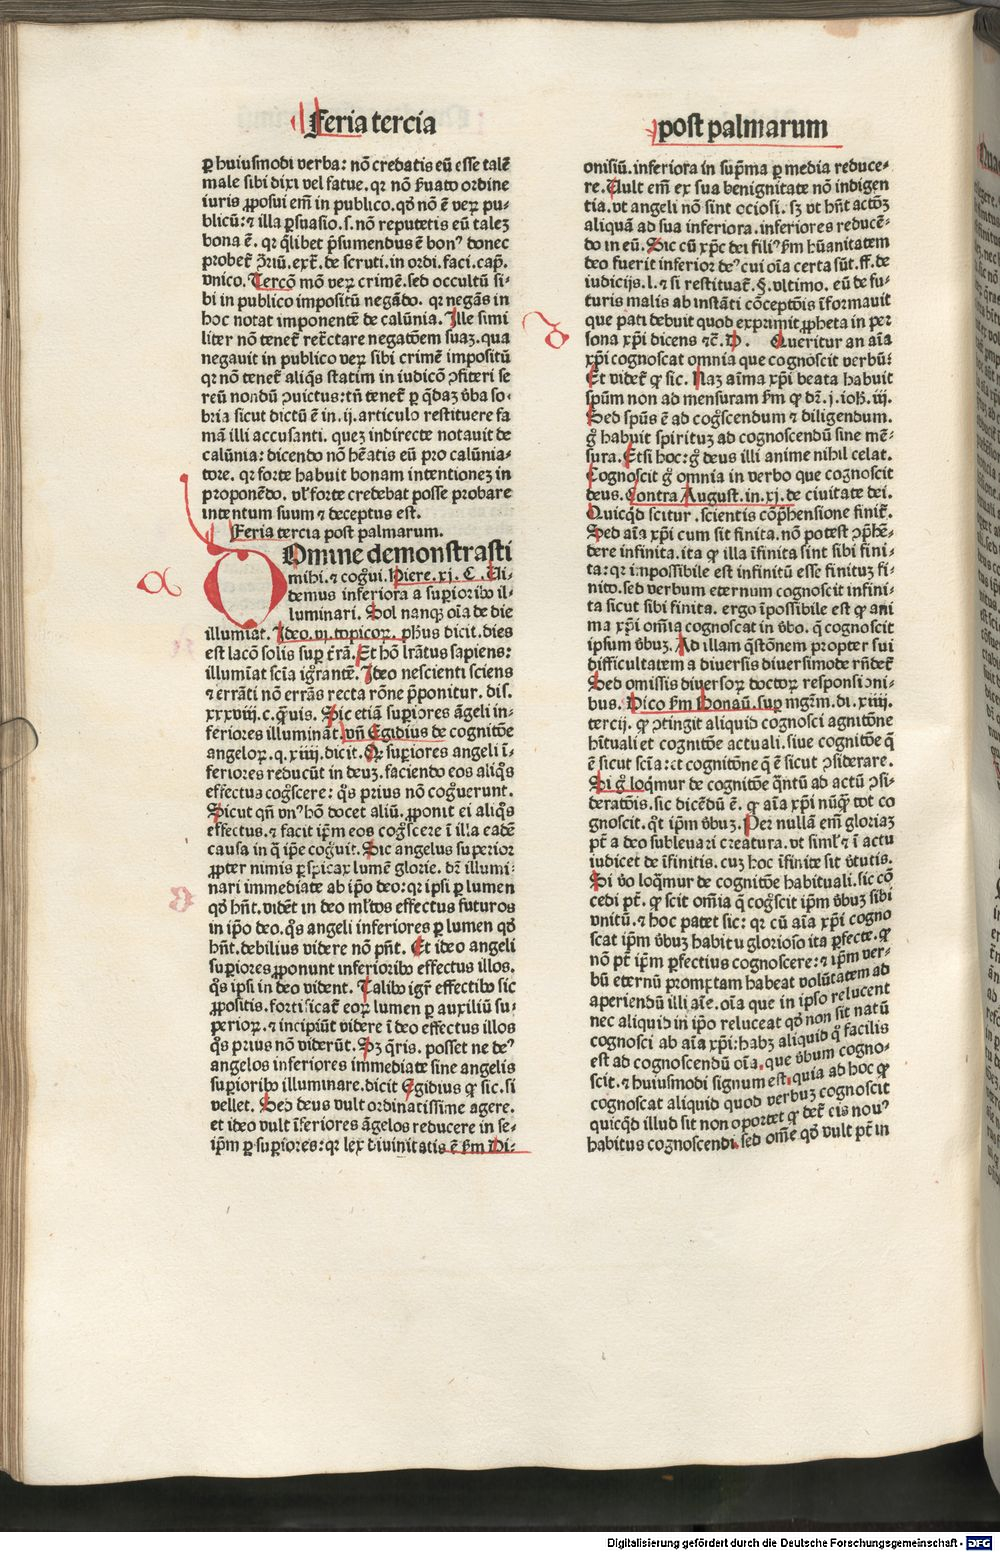 Feria tercia
post palmarum
ꝑ huiusmodi verba: nō credatis eū esse talē
male sibi dixi vel fatue. qꝛ nō ẜuato ordine
iuris ꝓposui em̄ in publico. qđ nō ē veꝝ pu-
blicū: ⁊ illa ꝑsuasio. s. nō reputetis eū talez
bona ē. qꝛ q̄libet p̄sumendus ē bonꝰ donec
probet᷑ ꝯ̄riū. ext̄. de scruti. in ordi. faci. cap̄.
vnico. Tercō mō veꝝ crimē. sed occultū si-
bi in publico impositū negādo. qꝛ negās in
hoc notat imponentē de calūnia. Ille simi
liter nō tenet᷑ ret᷑ctare negatōem suaz. qua
negauit in publico veꝝ sibi crimē impositū
qꝛ nō tenet᷑ aliq̄s statim in iudicō ꝯfiteri se
reū nondū ꝯuictus: tn̄ tenet᷑ ꝑ q̄daz v̄ba so-
bria sicut dictū ē in .ij. articulo restituere fa
mā illi accusanti. quez indirecte notauit de
calūnia: dicendo nō hēatis eū pro calūnia-
tore. qꝛ forte habuit bonam intentionez in
proponēdo. vl̓ forte credebat posse probare
intentum suum ⁊ deceptus est.
Feria tercia post palmarum.
DOmine demonstrasti
mihi. ⁊ cog̓ui. Hiere. xj. C. Ui-
demus inferiora a suꝑiorib⁹ il-
luminari. Sol nanqꝫ oīa de die
illumīat. Ideo .vj. topicoꝝ. pħus dicit. dies
est lacō solis suꝑ t̄rā. Et hō lr̄atus sapiens:
illumīat scīa ig̓rantē. Ideo nescienti sciens
⁊ errāti nō errās recta rōne p̄ponitur. dis.
xxxviij. c. q̄uis. Sic etiā suꝑiores āgeli in-
feriores illumināt. vn̄ Egidius de cognitōe
angeloꝝ. q. xiiij. dicit. Qꝛ suꝑiores angeli ī-
feriores reducūt in deuȝ. faciendo eos aliq̄s
effectus cog̓scere: q̄s prius nō cog̓uerunt.
Sicut qn̄ vnꝰ hō docet aliū. ꝓponit ei aliq̄s
effectus. ⁊ facit ip̄m eos cog̓scere ī illa eadē
causa in q̄ ip̄e cog̓uit. Sic angelus suꝑior
ꝓpter nimis ꝑspicax lumē glorie. dr̄ illumi-
nari immediate ab ip̄o deo: qꝛ ipsi ꝑ lumen
qđ hn̄t. vidēt in deo ml̓tos effectus futuros
in ip̄o deo. q̄s angeli inferiores ꝑ lumen qđ
hn̄t. debilius videre nō pn̄t. Et ideo angeli
suꝑiores ꝓponunt inferiorib⁹ effectus illos.
q̄s ipsi in deo vident. Talib⁹ igr̄ effectib⁹ sic
ꝓpositis. fortificat᷑ eoꝝ lumen ꝑ auxiliū su-
perioꝝ. ⁊ incipiūt videre ī deo effectus illos
q̄s prius nō viderūt. Sȝ q̄ris. posset ne deꝰ
angelos inferiores immediate sine angelis
suꝑiorib⁹ illuminare. dicit Egidius ꝙ sic. si
vellet. Sed deus vult ordinatissime agere.
et ideo vult īferiores āgelos reducere in se-
ip̄m ꝑ suꝑiores: qꝛ lex diuinitatis ē ẜm Di-
onisiū. inferiora in supͣma ꝑ media reduce-
re. Uult em̄ ex sua benignitate nō indigen
tia. vt angeli nō sint ociosi. sȝ vt hn̄t actōȝ
aliquā ad sua inferiora. inferiores reducē-
do in eū. Sic cū xp̄c dei filiꝰ ẜm hūanitatem
deo fuerit inferior deꝰ cui oīa certa sūt. ff. de
iudicijs. l. ⁊ si restituat᷑. §. vltimo. eū de fu-
turis malis ab instāti cōceptōis īformauit
que pati debuit quod exprimit ꝓpheta in per
sona xp̄i dicens ⁊c̄. D. Queritur an aīa
xp̄i cognoscat omnia que cognoscit verbū:
Et videt᷑ ꝙ sic. Naȝ aīma xp̄i beata habuit
spūm non ad mensuram ẜm ꝙ dr̄. j. ioħ. iij.
Sed spūs ē ad cog̓scendum ⁊ diligendum.
g̊ habuit spirituȝ ad cognoscendū sine mē-
sura. Etsi hoc: g̊ deus illi anime nihil celat.
Cognoscit g̊ omnia in verbo que cognoscit
deus. Contra August. in .xj. de ciuitate dei.
Quicqd̄ scitur. scientis cōp̄hensione finit᷑.
Sed aīa xp̄i cum sit finita. nō potest ꝯp̄hē-
dere infinita. ita ꝙ illa īfinita sint sibi fini-
ta: qꝛ inpossibile est infinitū esse finituȝ fi-
nito. sed verbum eternum cognoscit infini-
ta sicut sibi finita. ergo īpossibile est ꝙ ani
ma xp̄i om̄ia cognoscat in v̄bo. q̄ cognoscit
ipsum v̄buȝ. Ad illam q̄stōnem propter sui
difficultatem a diuersis diuersimode rn̄det᷑
Sed omissis diuersoꝝ doctoꝝ responsioni-
bus. Dico ẜm Bonaū. suꝑ mgr̄m. di. xiiij.
tercij. ꝙ ꝯtingit aliquid cognosci agnitōne
hītuali et cognitōe actuali. siue cognitōe q̄
ē sicut scīa: et cognitōne q̄ ē sicut ꝯsiderare.
Si g̊ loq̄mur de cognitōe q̄ntū ad actū ꝯsi-
deratōis. sic dicēdū ē. ꝙ aīa xp̄i nūq̄ꝫ tot co
gnoscit. q̄t ip̄m v̄buȝ. Per nullā em̄ gloriaȝ
pt̄ a deo subleuari creatura. vt siml̓ ⁊ ī actu
iudicet de īfinitis. cuȝ hoc īfinite sit v̄tutis.
Si v̄o loq̄mur de cognitōe habituali. sic cō
cedi pt̄. ꝙ scit om̄ia q̄ cog̓scit ip̄m v̄buȝ sibi
vnitū. ⁊ hoc patet sic: qꝛ cū aīa xp̄i cogno
scat ip̄m v̄buȝ habitu glorioso ita ꝑfecte. ꝙ
nō pt̄ ip̄m ꝑfectius cognoscere: ⁊ ip̄m ver-
bū eternū promptam habeat volūtatem ad
aperiendū illi aīe. oīa que in ipso relucent
nec aliquid in ip̄o reluceat qđ non sit natū
cognosci ab aīa xp̄i: habȝ aliquid q̊ facilis
est ad cognoscendū oīa. que v̄bum cogno-
scit. ⁊ huiusmodi signum est. quia ad hoc ꝙ
cognoscat aliquid quod verbuȝ cognoscit
quicqd̄ illud sit non oportet ꝙ det᷑ eis nouꝰ
habitus cognoscendi. sed om̄e qđ vult pt̄ in
Digitalisierung gefördert durch die Deutsche Forschungsgemeinschaft - DFG